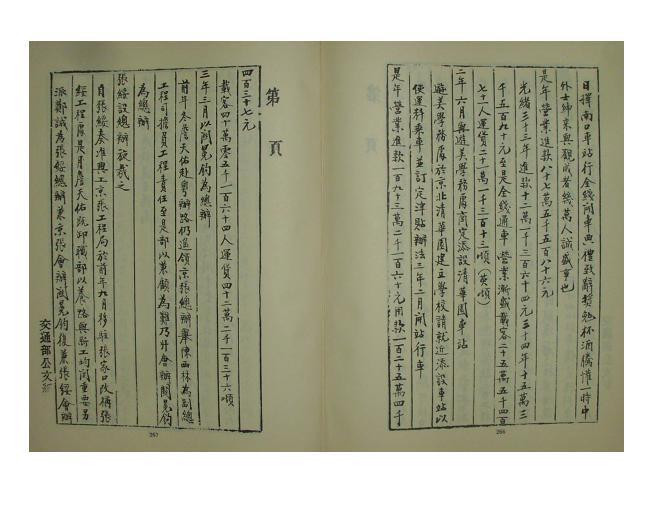 日擇南口車站行全綫開車典禮致辭獎勉杯酒騰懽一時中
外士紳來與觀成者幾萬人誠盛事也
是年營業進款八十七萬五千五百八十六元
光緒三十三年進款十二萬一千三百六十四元三十四年十五萬三
千五百九十元至是全綫通車營業漸盛載客二十五萬五千四百
七十一人運貨二十一萬一千三百十三噸（英噸）
二年六月與遊美學務處商定添設清華園車站
遊美學務處於京北清華園建立學校請就近添設車站以
便運料乘車並訂定津貼辦法三年二月開站行車
是年營業進款一百九十三萬二千一百六十元用款一百二十五萬四千
266
第 頁
四百三十七元
載客四十萬零五千一百六十四人運貨四十二萬二千一百三十六噸
三年三月以關冕鈞為總辦
前年冬詹天佑赴粵辦路仍遙領京張總辦舉陳西林為副總
工程司擔負工程責任至是部以兼顧為難乃升會辦關冕鈞
為總辦
張綏設總辦旋裁之
自張綏奏准興工京張工程局於前年九月移駐張家口改稱張
綏工程處是月詹天佑既卸職部以養路與新工均關重要另
派鄺誠為張綏總辦兼京張會辦關冕鈞復兼張綏會辦
交通部公文紙
267